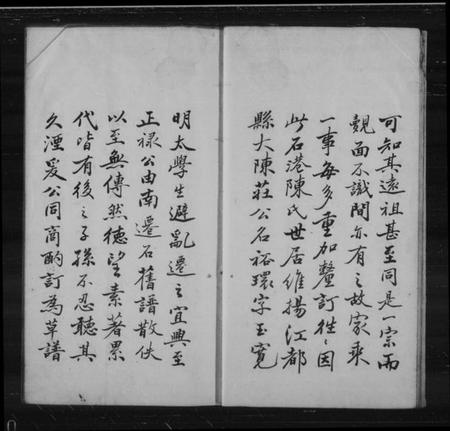 可知其遠祖甚至同是一宗而
覿面不識間亦有之故家乘
一事每多重加釐訂徃〻因
此石港陳氏世居維揚江都
縣大陳莊公名裕環字玉寬
明太學生避亂遷之宜興至
正祿公由南遷石舊譜散佚
以至無傳然德望素著累
代皆有後之子孫不忍聽其
久湮爰公同商酌訂為草譜